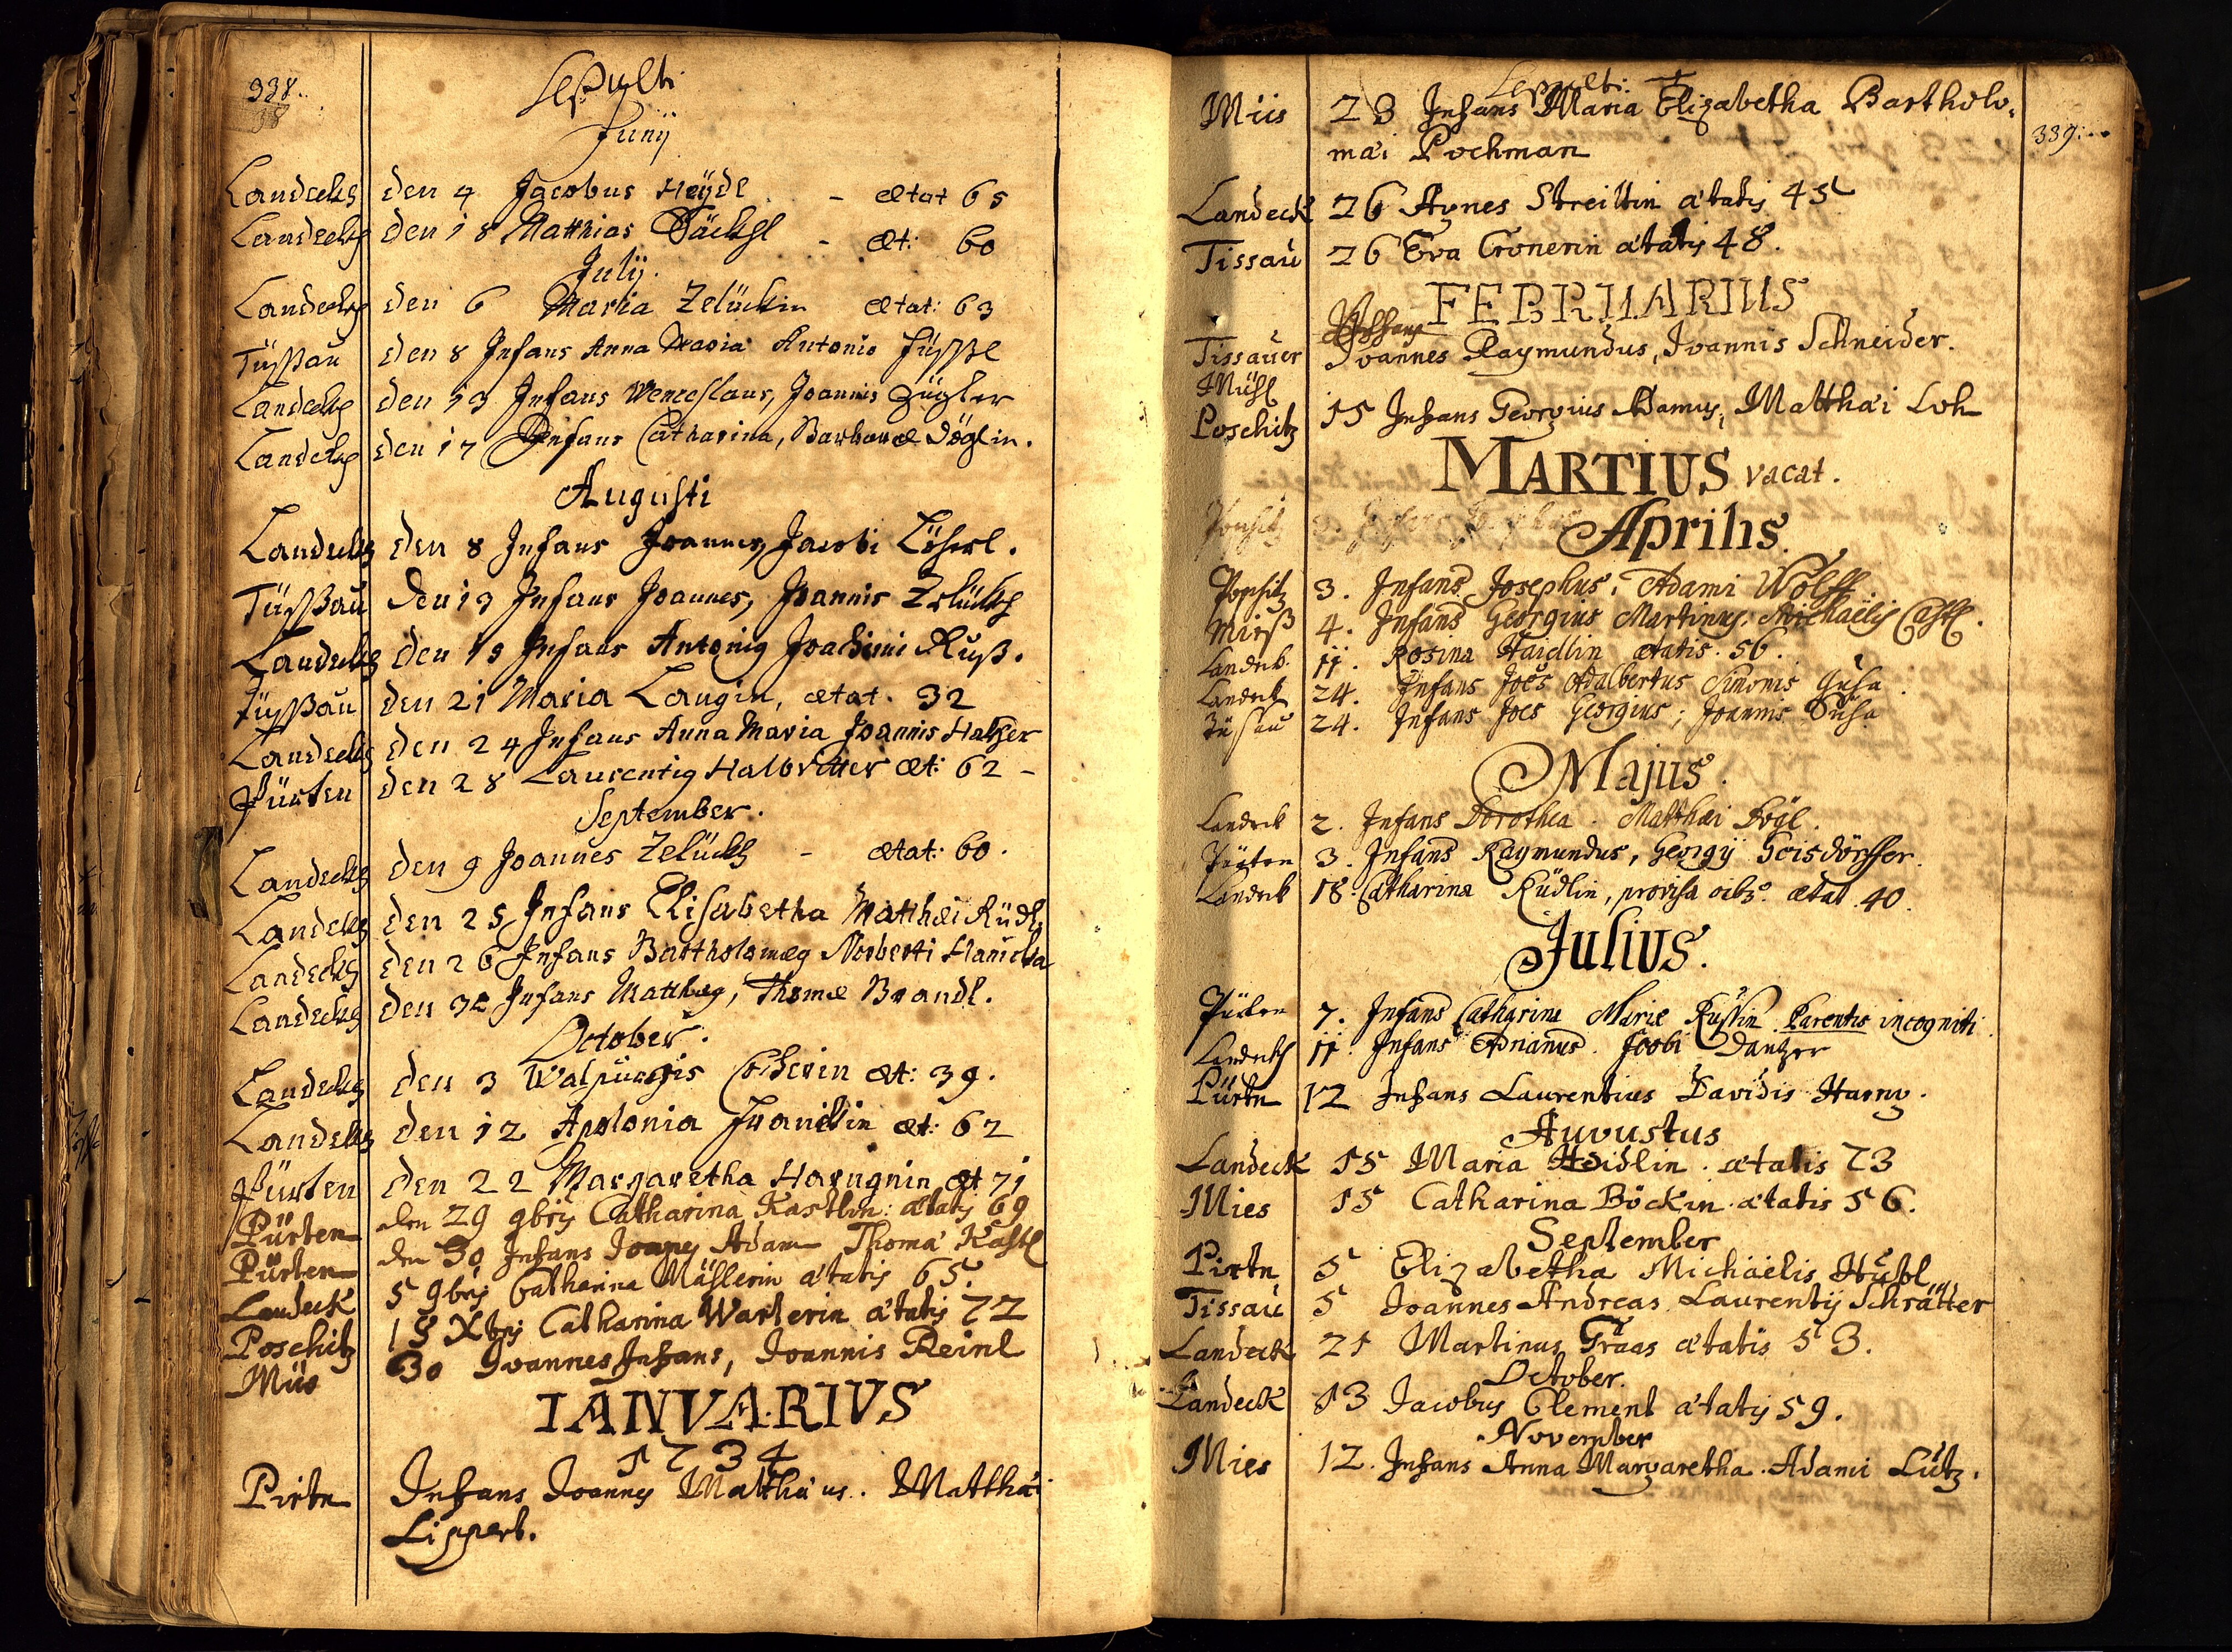 338.
38
Sepulti
Junij
Landeckh den 4 Jacobus Heÿdl - ætat 65
Landeckh den 18 Matthias Päckhl - æt: 60
Julij.
Landeckh den 6 Maria Zelückin ætat: 63
Tüßßau den 8 Infans Anna Maria Antonio füßßl
Landeckh den 13 Infans Wenceslaus, Joannis Zügler
Landeckh den 17 Infans Catharina, Barbaræ Döglin.
Augusti
Landeckh den 8 Infans Joannes, Jacobi Löherl.
Tüßßau den 13 Infans Joannes, Joannis Zelückh
Landeckh den 19 Infans Antonig Joachimi Ruß.
Tüßßau den 21 Maria Langin, ætat. 32
Landeckh den 24 Infans Anna Maria Joannis Hatzer
Pürten den 28 Laurentig Halbritter æt: 62 -
September.
Landeckh den 9 Joannes Zelückh - ætat: 60.
Landeckh den 25 Infans Elisabetha Matthæi Rüdl.
Landeckh den 26 Infans Bartholomæg Norberti Hanicka
Landeckh den 30 Infans Matthæg, Thomæ Brandl.
October.
Landeckh den 3 Walpurgis æt: 39.
Landeckh den 12 Apolonia æt: 62
Pürten den 22 Margaretha Harugnin æt 71
Pürten den 29 9bris Catharina Kastlin: ætatis 69
Pürten den 30 Infans Joanes Adam Thomæ Kastl
Landeck 5 9bris Catharina Mäßlerin ætatis 65.
Poschitz 18 Xbris Catharina Warterin ætatis 72
Müs 30 Ioannes Infans, Ioannis Reinl
IANVARIVS
1734
Pirtn Infans Joannes Matthæus. Matthæi
Lippert.
Sepulti:
339:
Müs 23 Infans Maria Elizabetha Bartholo.
mæi Pochman
Landeck 26 Agnes Streiltin ætatis 45
Tissau 26 Eva Cronerin ætatis 48.
FEBRUARIUS
Infans
Tissauer Ioannes Raymundus, Ioannis Schneider.
Mühl
Poschitz 15 Infans Georgius Adamus, Matthæi Loh
MARTIUS vacat.
Aprilis.
Poschitz 3. Infans Josephus, Adami Wolff
Mieß 4. Infans Georgius Martinus, Michaëlis Castl.
Landeck 11. Rosina Haidlin ætatis. 56.
Landeck 24. Infans Joës Adalbertus Simonis Susa.
Tüssau 24. Infans Joes Georgius; Joannis Susa
Majus.
Landeck 2. Infans Dorothea. Matthæi Vögl.
Pürten 3. Infans Raymundus, Georgij Geisdörffer.
Landeck 18. Catharina Rüdlin, provisa oibs. ætat. 40.
Julius.
Pürten 7. Infans Catharina Mariæ Russin. Parentis incogniti.
Landeckh 11. Infans Adrianus. Jacobi Dantzer
Pürtn 12 Infans Laurentius Davidis Harng.
Augustus
Landeck 15 Maria Heidlin. ætatis 73
Mies 15 Catharina Böckin. ætatis 56.
September
Pirtn 5 Elizabetha Michäelis Hüßl
Tissau 5 Joannes Andreas. Laurentij Schrätter
Landeck 21 Martinus Graas ætatis 53.
October.
Landeck 13 Iacobus Clement ætatis 59.
November
Mies 12. Infans Anna Margaretha. Adami Lutz.